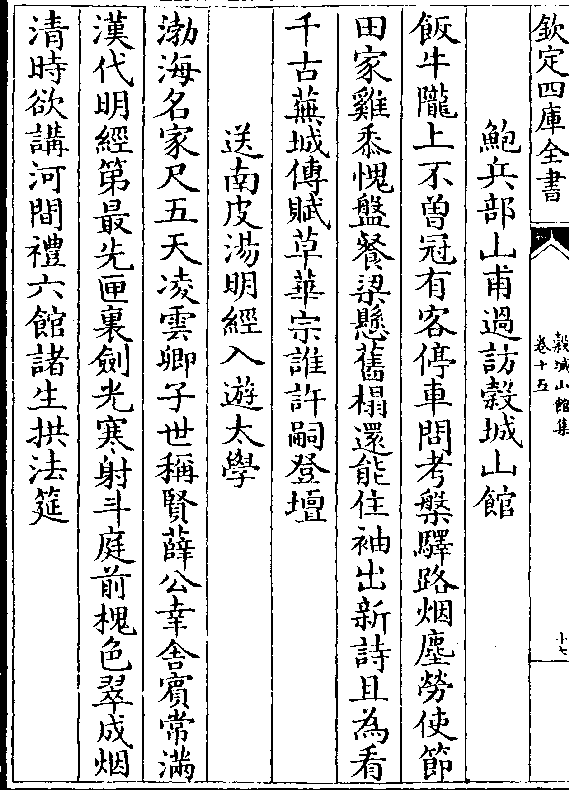 欽定四庫全書
穀城山館集
卷十五
十七
鮑兵部山甫過訪穀城山館
飯牛隴上不曽冠有客停車問考槃驛路烟塵勞使節
田家雞黍愧盤餐梁懸舊榻還能住袖出新詩且為看
千古蕪城傳賦草華宗誰許嗣登壇
送南皮湯明經入遊太學
渤海名家尺五天凌雲卿子世稱賢薛公幸舍賓常滿
漢代明經第最先匣裏劍光寒射斗庭前槐色翠成烟
清時欲講河間禮六館諸生拱法筵